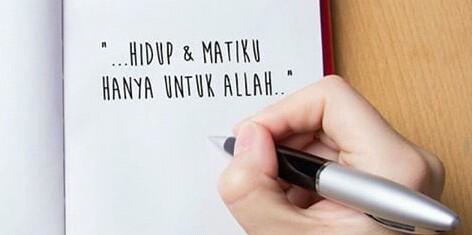 "...HIDUP & MATIKU
HANYA UNTUK ALLAH.."